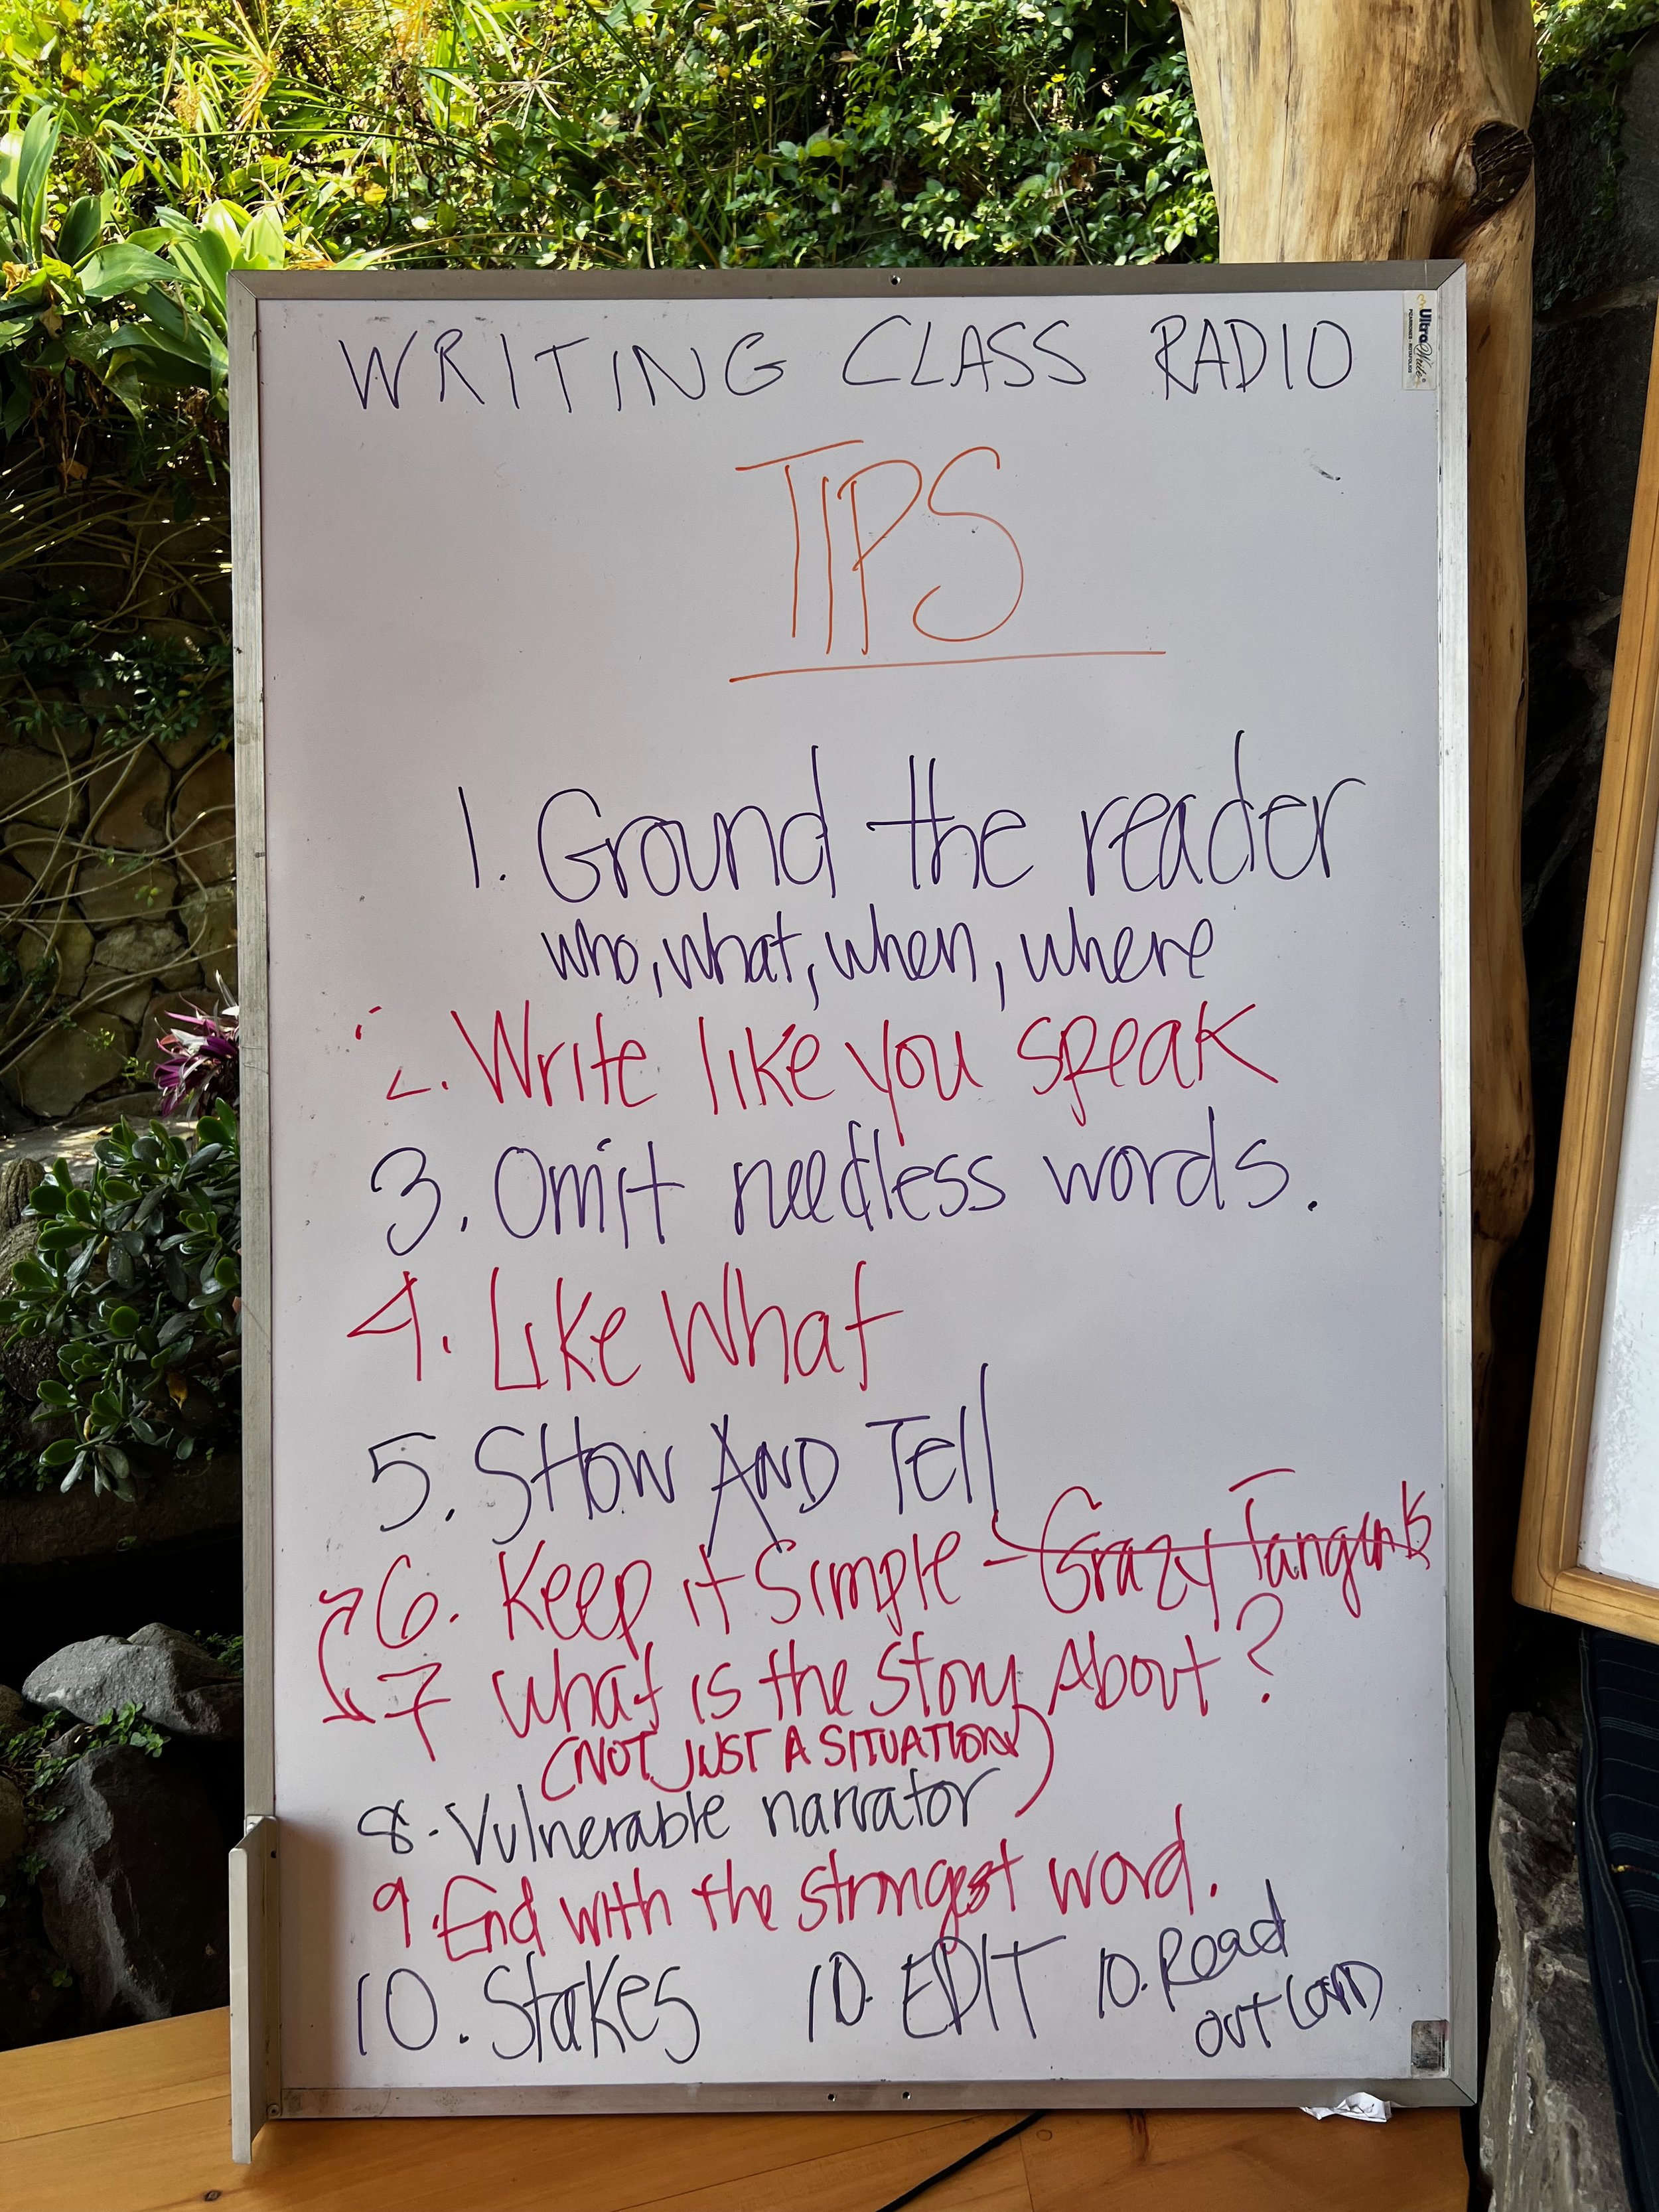 WRITING CLASS RADIO
UltraWrite
TIPS
1. Ground the reader
who, what, when, where
2. Write like you speak
3. Omit needless words.
4. Like What
5. SHOW AND Tell
6. Keep it Simple - Crazy Tangents
7 What is the Story About?
(NOT JUST A SITUATION)
8. Vulnerable narrator
9. End with the strongest word.
10. Stakes 10. EDIT 10. Read
OUT LOUD